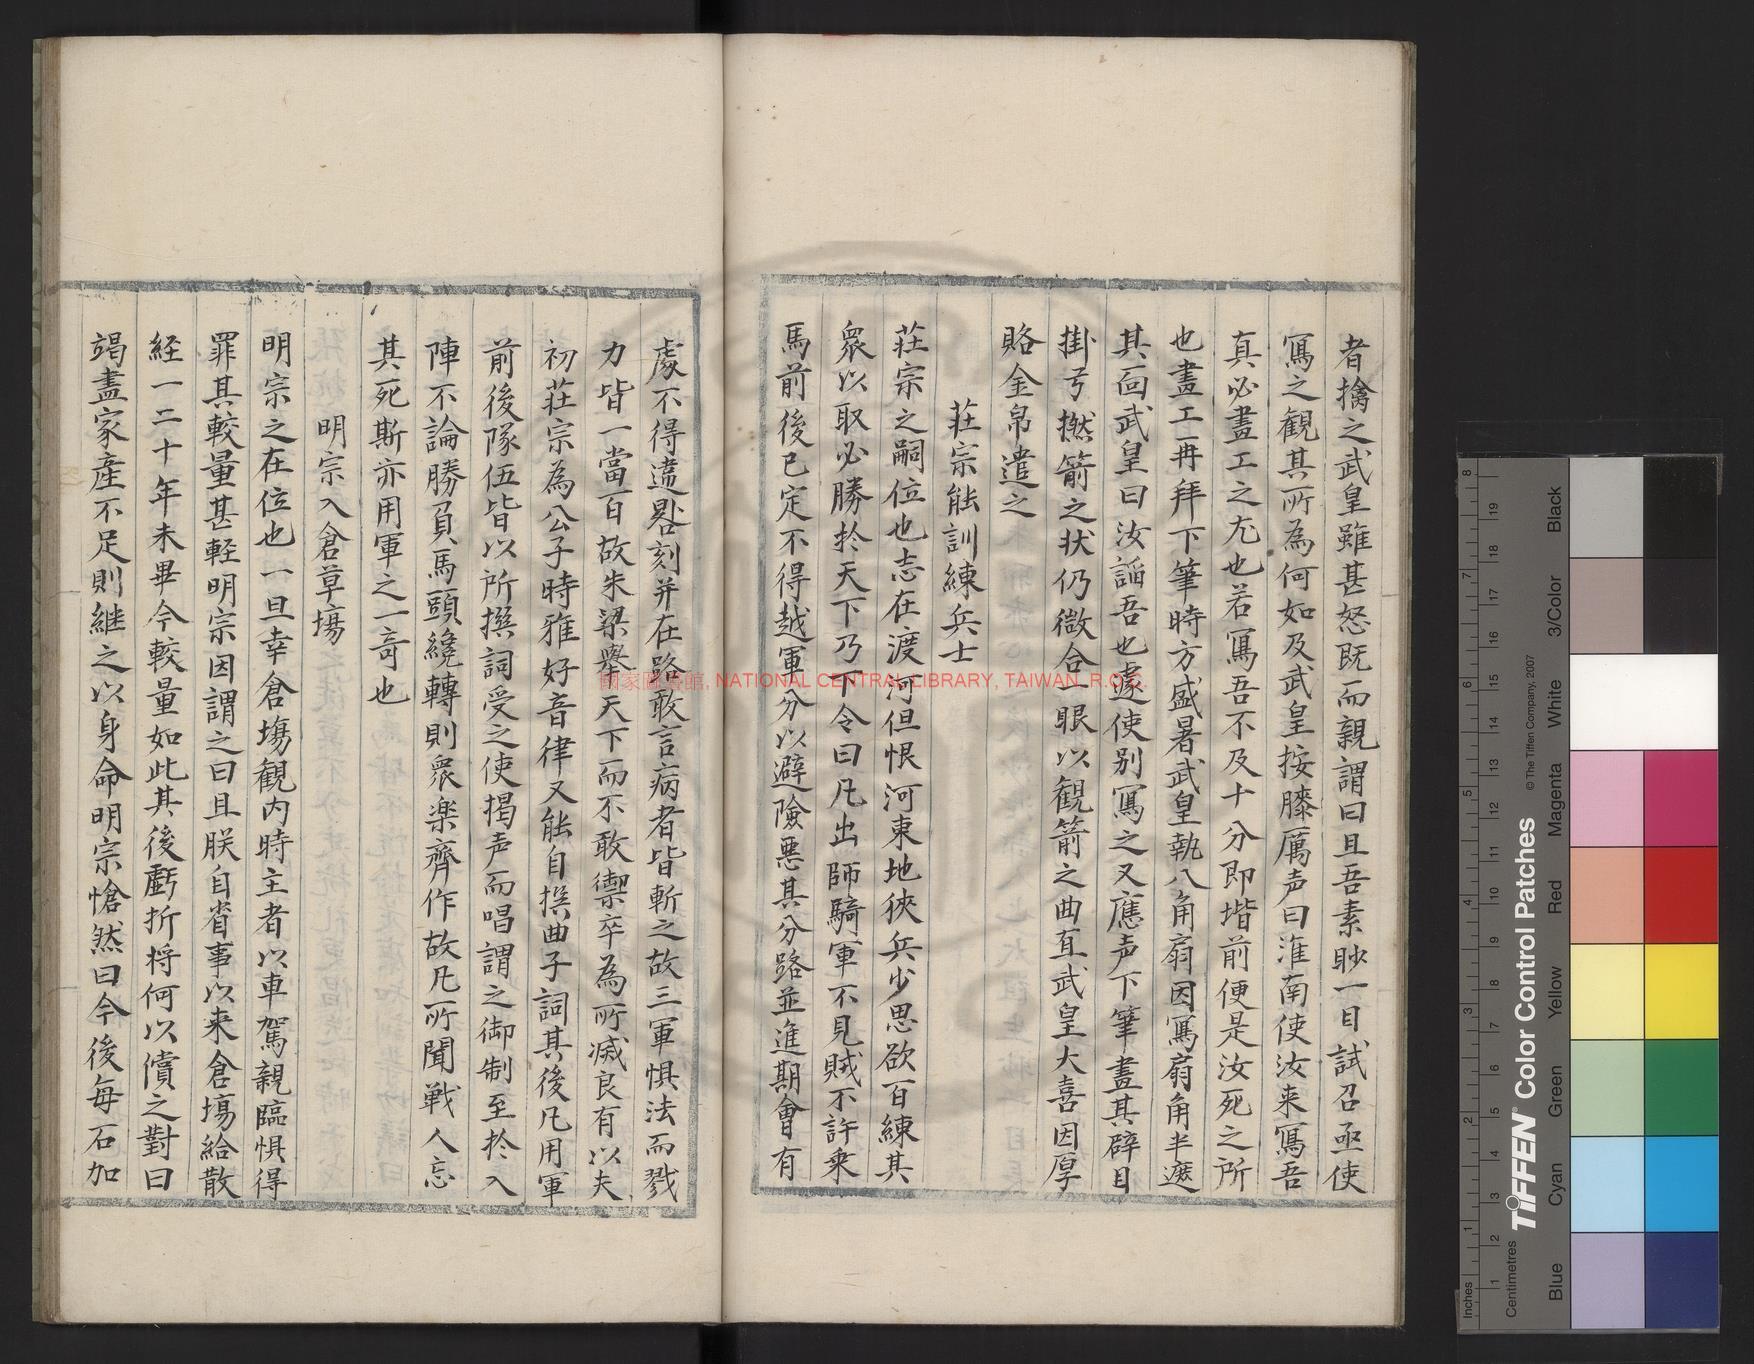 者擒之武皇雖甚怒既而親謂曰且吾素眇一目試召亟使
寫之觀其所為何如及武皇按膝厲声曰淮南使汝来寫吾
真必畫工之尤也若寫吾不及十分即堦前便是汝死之所
也畫工再拜下筆時方盛暑武皇執八角扇因寫扇角半遮
其面武皇曰汝謟吾也遽使别寫之又應声下筆畫其臂目
掛弓撚箭之状仍微合一眼以觀箭之曲直武皇大喜因厚
賂金帛遣之
莊宗能訓練兵士
莊宗之嗣位也志在渡河但恨河東地狹兵少思欲百練其
衆以取必勝扵天下乃下令曰凡出師騎軍不見賊不許乗
馬前後已定不得越軍分以避險惡其分路並進期會有
處不得違晷刻并在路敢言病者皆斬之故三軍惧法而戮
力皆一當百故朱梁舉天下而不敢禦卒為所滅良有以夫
初莊宗為公子時雅好音律又能自撰曲子詞其後凡用軍
前後隊伍皆以所撰詞受之使揭声而唱謂之御制至扵入
陣不論勝負馬頭纔轉則衆楽齊作故凡所聞戦人忘
其死斯亦用軍之一奇也
明宗入倉草塲
明宗之在位也一旦幸倉塲觀内時主者以車駕親臨惧得
罪其較量甚輕明宗因謂之曰且朕自省事以来倉塲給散
経一二十年未畢今較量如此其後虧折将何以償之對曰
竭盡家産不足則継之以身命明宗愴然曰今後每石加
國家圖書館, NATIONAL CENTRAL LIBRARY, TAIWAN, R.O.C.
TIFFEN Color Control Patches
© The Tiffen Company, 2007
Inches
Centimetres
Blue
Cyan
Green
Yellow
Red
Magenta
White
3/Color
Black